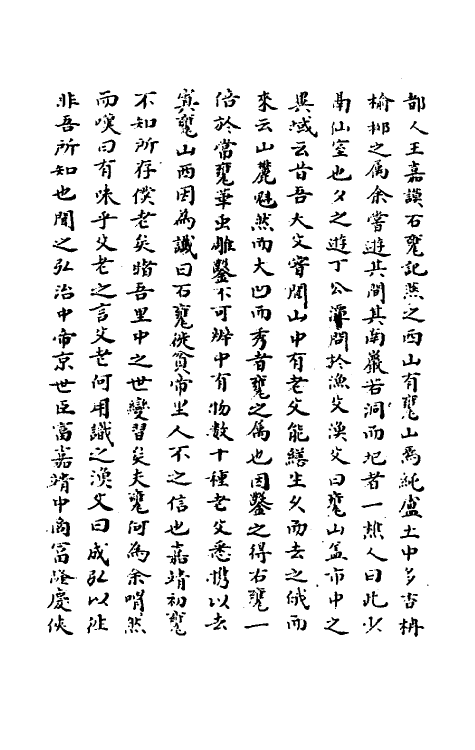 都人王嘉謨石甕記燕之西山有甕山焉純盧土中多杏柟
榆柳之属余嘗遊其間其南巖若洞而圮者一樵人曰此少
鬲仙室也夕之遊丁公潭問扵漁父漁父曰甕山盖市中之
異域云昔吾大父嘗聞山中有老父能繕生久而去之俄而
來云山麓魁然而大凹而秀者甕之属也因鑿之得石甕一
倍於常甕華虫雕鑿不可辨中有物数十種老父悉携以去
寘甕山西因為讖曰石甕徙貧帝里人不之信也嘉靖初甕
不知所存僕老矣睹吾里中之世變習矣夫甕何為余喟然
而嘆曰有味乎父老之言父老何用讖之漁父曰成弘以徃
非吾所知也聞之弘治中帝京世臣富嘉靖中商富隆慶俠